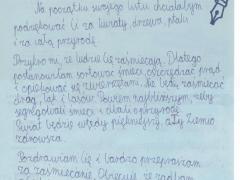 Na początku swojego listu chciałabym
podziękować Ci za kwiaty, drzewa, ptaki
i za całą przyrodę.
Przykro mi, że ludzie Cię zaśmiecają. Dlatego
postanowiłam sortować śmieci, oszczędzać prąd
i opiekować się zwierzętami. Nie będę zaśmiecać
dróg, łąk i lasów. Powiem najbliższym, żeby
segregowali śmieci i dbali o przyrodę.
Świat będzie wtedy piękniejszy, a Ty Ziemio
zdrowsza.
Pozdrawiam Cię i bardzo przepraszam
za zaśmiecanie. Obiecuję, że zadbam